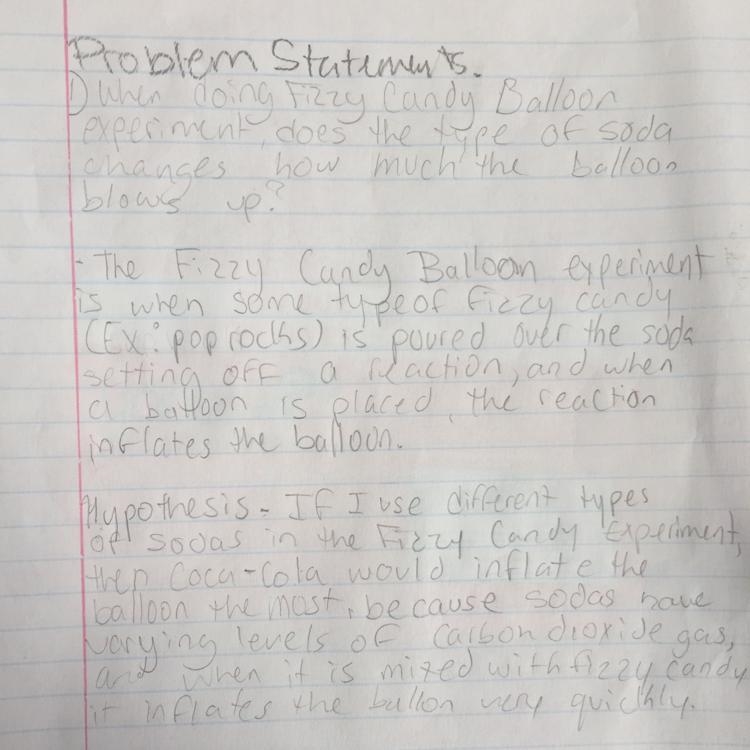 Problem Statements.
1) When doing Fizzy Candy Balloon
experiment, does the type of soda
changes how much the balloon
blows up?
- The Fizzy Candy Balloon experiment
is when some type of fizzy candy
(Ex: pop rocks) is poured over the soda
setting off a reaction, and when
a balloon is placed, the reaction
inflates the balloon.
Hypothesis - If I use different types
of sodas in the Fizzy Candy Experiment,
then Coca-Cola would inflate the
balloon the most, because sodas have
varying levels of carbon dioxide gas,
and when it is mixed with fizzy candy
it inflates the ballon very quickly.